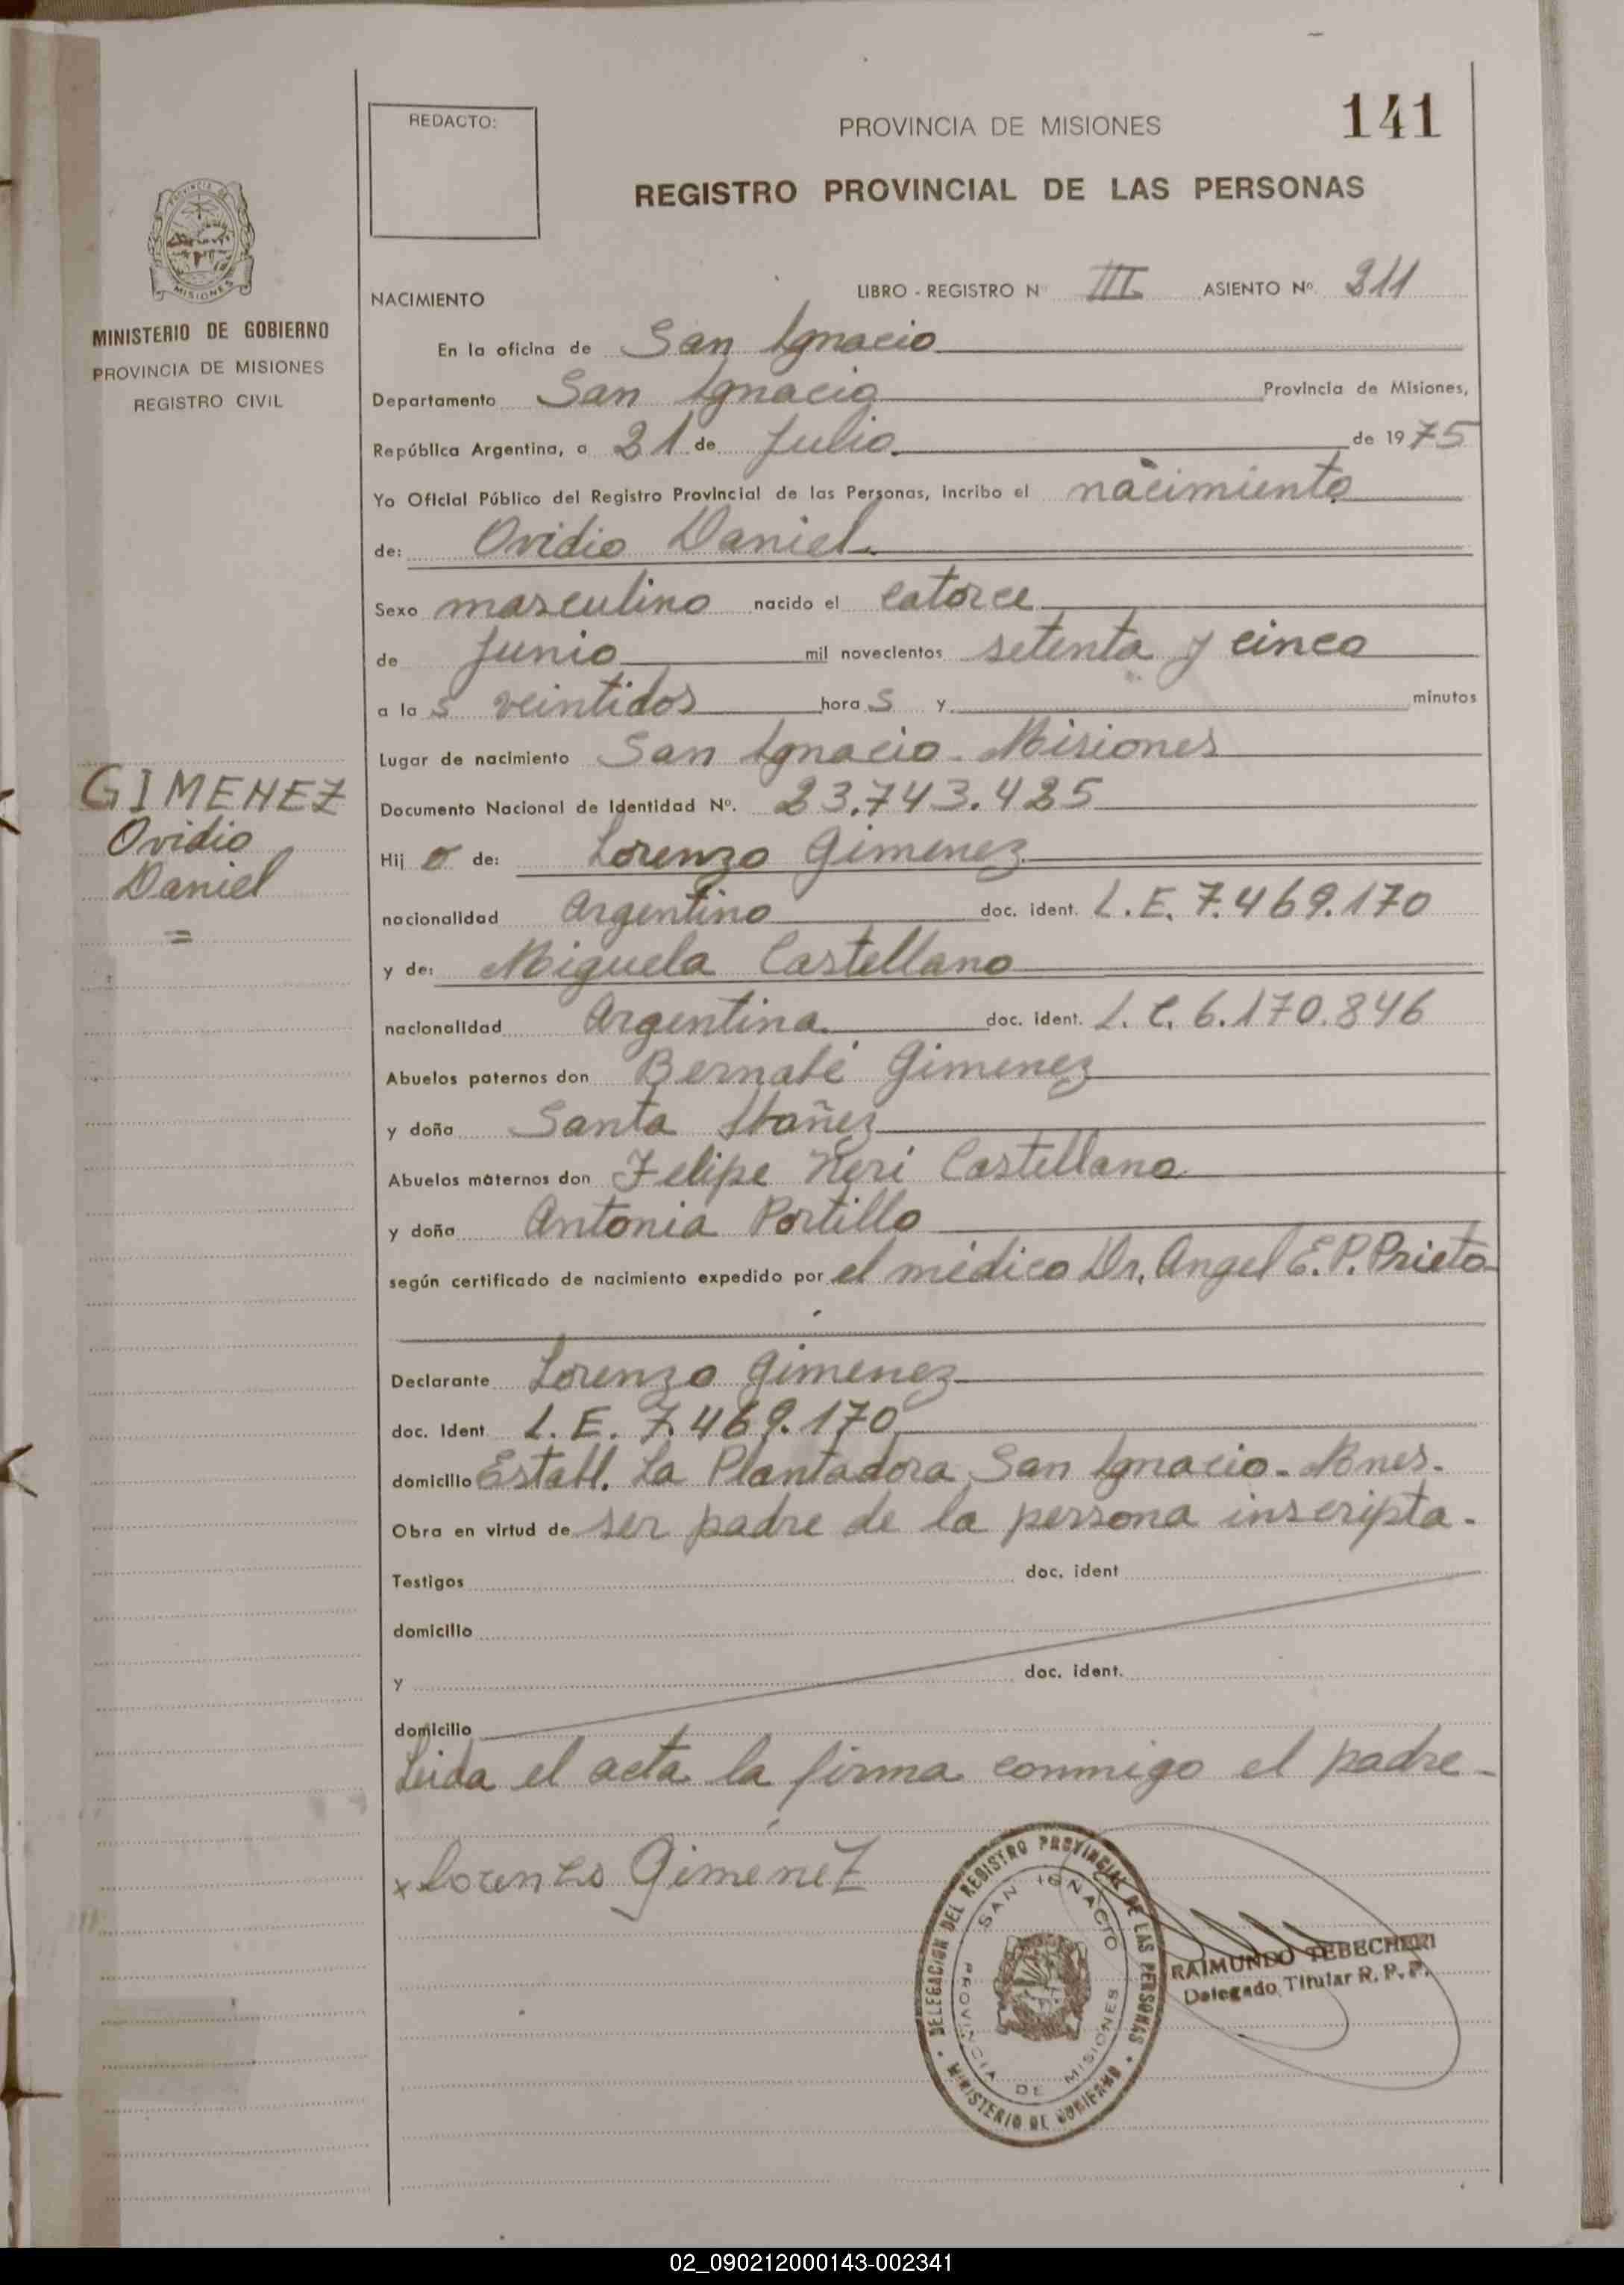 REDACTO:
PROVINCIA DE MISIONES
141
REGISTRO PROVINCIAL DE LAS PERSONAS
PROVINCIA DE
MISIONES
MINISTERIO DE GOBIERNO
PROVINCIA DE MISIONES
REGISTRO CIVIL
NACIMIENTO
LIBRO - REGISTRO Nº III ASIENTO Nº 211
En la oficina de San Ignacio
Departamento San Ignacio Provincia de Misiones,
República Argentina, a 21 de Julio de 1975
Yo Oficial Público del Registro Provincial de las Personas, Incribo el nacimiento
de: Ovidio Daniel.
Sexo masculino nacido el catorce
de Junio mil novecientos setenta y cinco
a las veintidos horas y minutos
Lugar de nacimiento San Ignacio - Misiones
Documento Nacional de Identidad Nº. 23.743.425
GIMENEZ
Ovidio
Daniel
=
Hijo de: Lorenzo Gimenez
nacionalidad Argentino doc. ident. L.E. 7.469.170
y de: Miguela Castellano
nacionalidad Argentina doc. ident. L.C. 6.170.846
Abuelos paternos don Bernabé Gimenez
y doña Santa Ibañez
Abuelos maternos don Felipe Neri Castellano
y doña Antonia Portillo
según certificado de nacimiento expedido por el médico Dr. Angel E.P. Prieto
Declarante Lorenzo Gimenez
doc. Ident L.E. 7.469.170
domicilio Establ. La Plantadora San Ignacio - Mnes.
Obra en virtud de ser padre de la persona inscripta.
Testigos doc. ident
domicilio
y doc. ident.
domicilio
Leida el acta la firma conmigo el padre -
x Lorenzo GimeneZ
DELEGACION DEL REGISTRO PROVINCIAL DE LAS PERSONAS
SAN IGNACIO
PROVINCIA DE MISIONES
MINISTERIO DE GOBIERNO
RAIMUNDO TEBECHERI
Delegado Titular R. P. P.
02_090212000143-002341